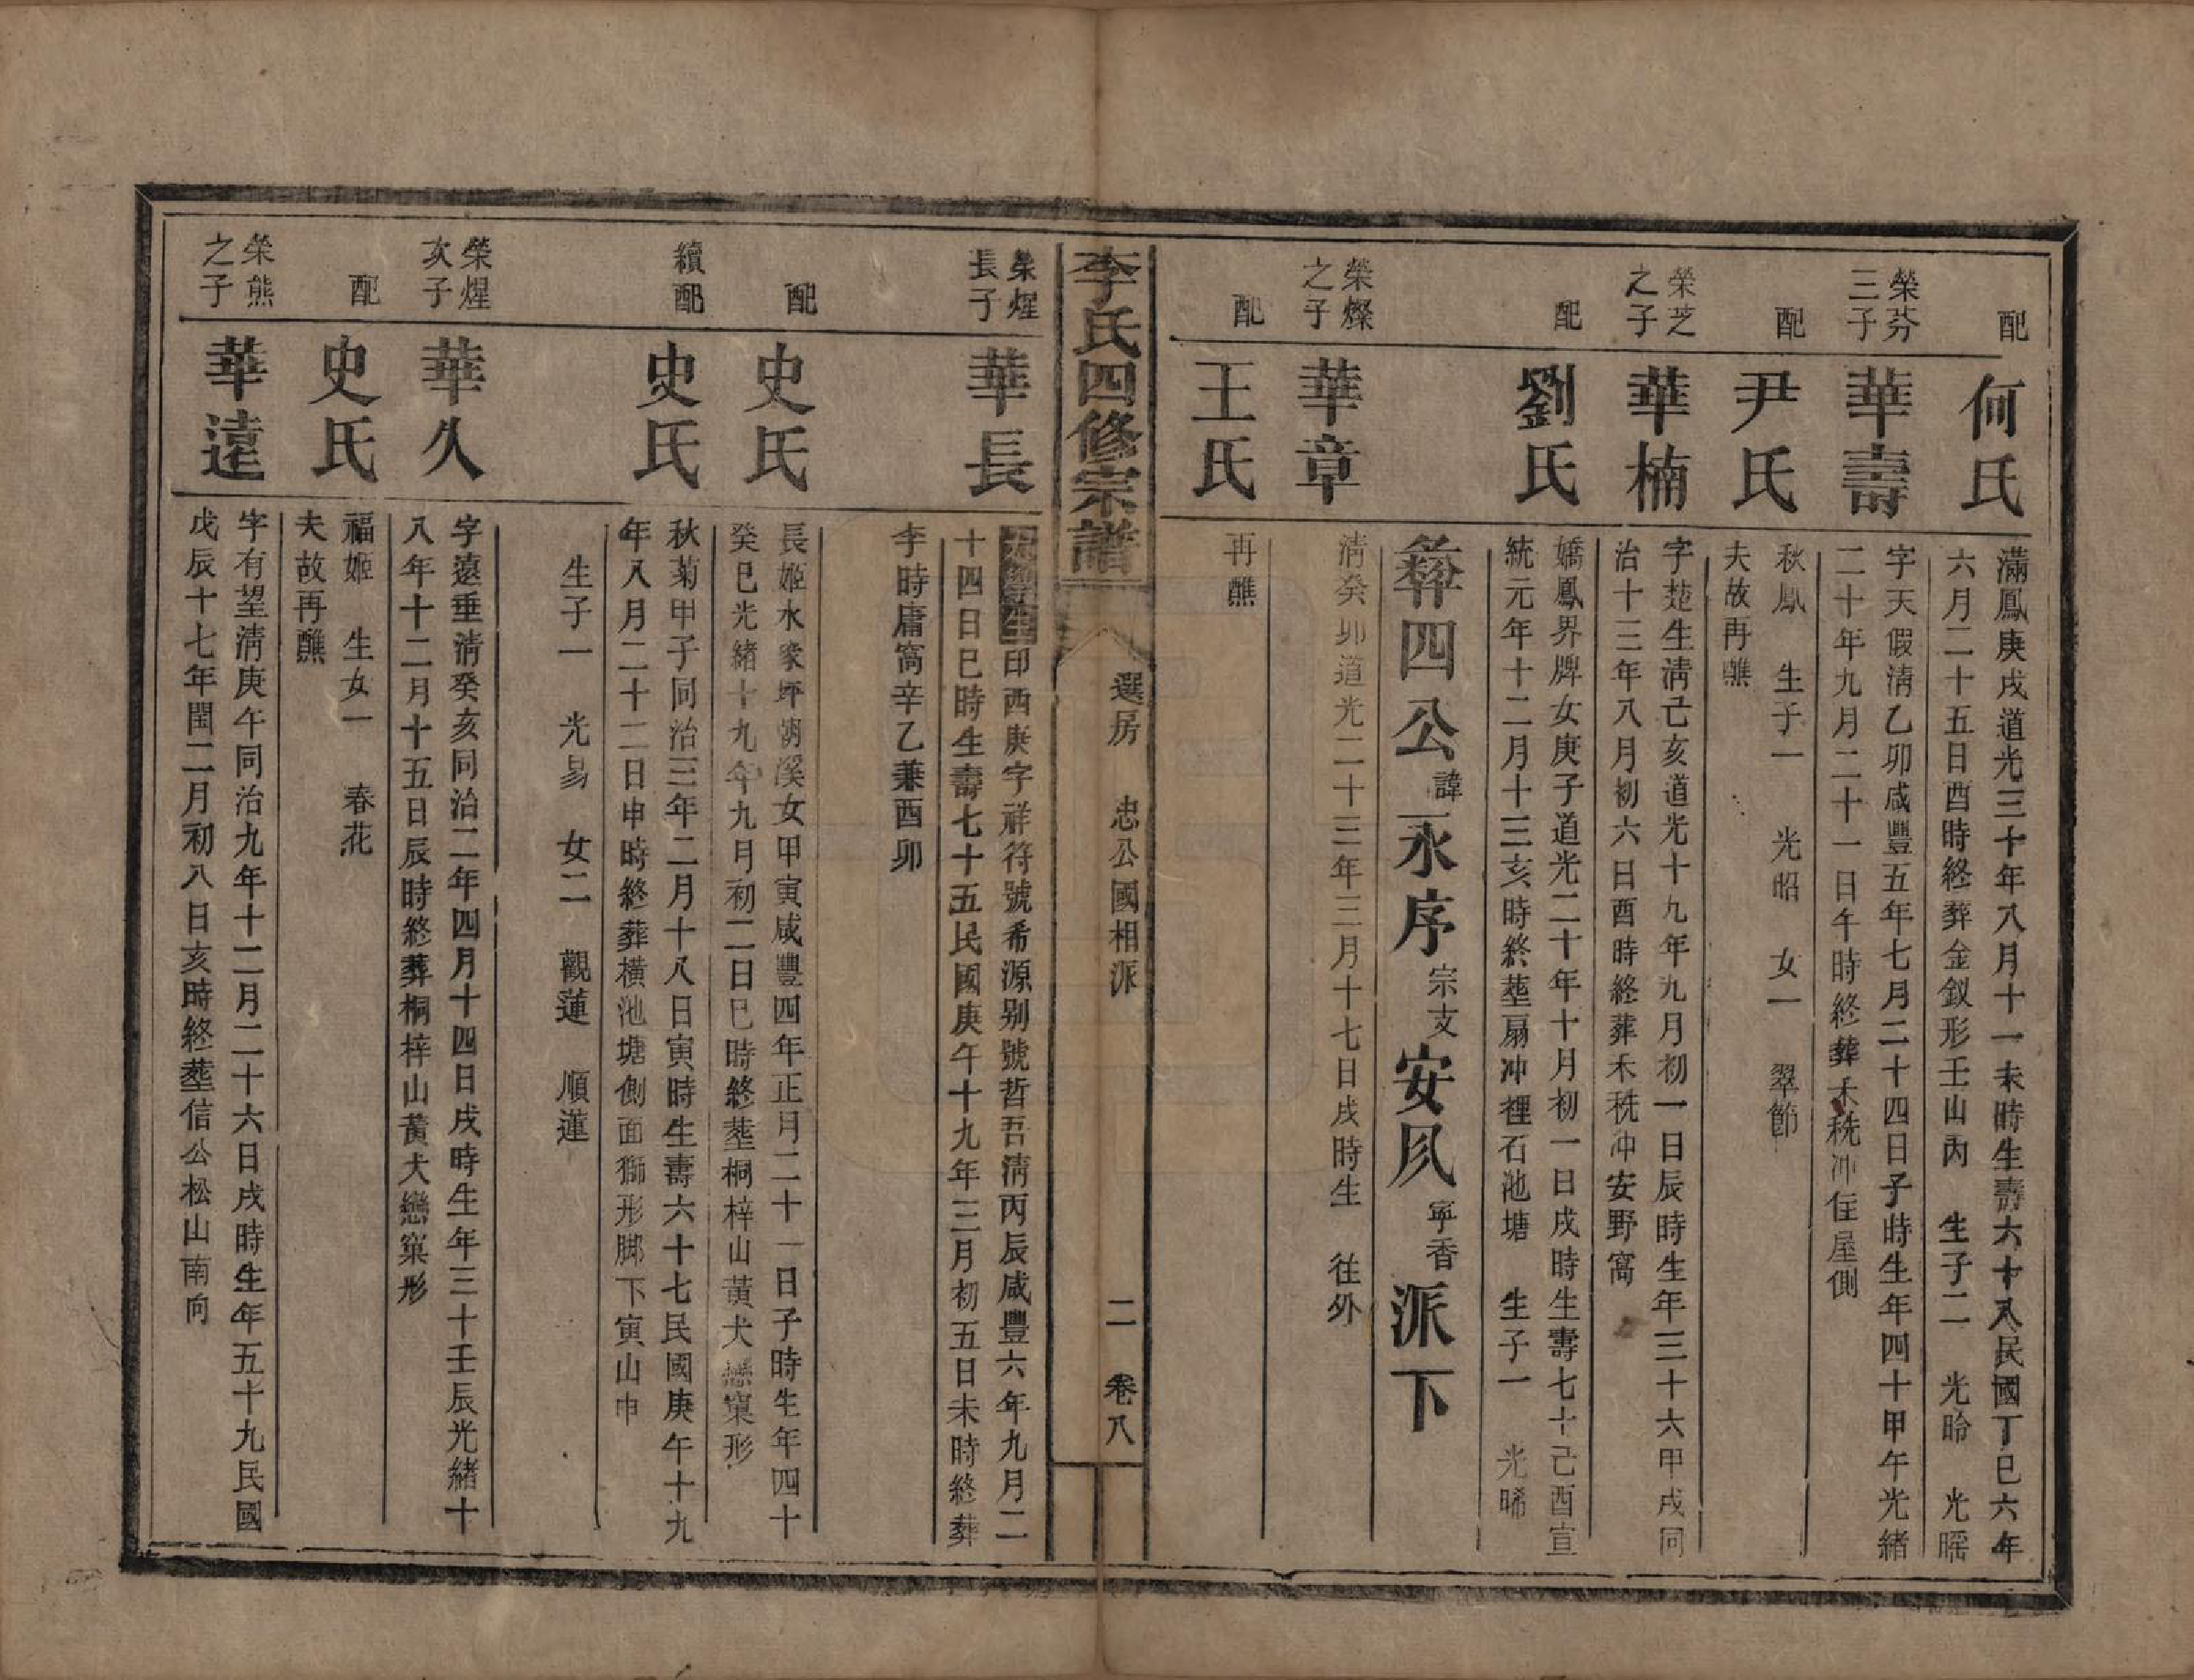 配
何氏
滿鳳庚戌道光三十年八月十一未時生壽六十八民國丁巳六年
六月二十五日酉時終葬金釵形壬山內 生子二 光昤 光暚
榮芬
三子
華壽
字天假清乙卯咸豐五年七月二十四日子時生年四十甲午光緒
二十年九月二十一日午時終葬禾秔冲住屋側
配
尹氏
秋鳳 生子一 光昭 女一 翠節
夫故再醮
榮芝
之子
華楠
字楚生清己亥道光十九年九月初一日辰時生年三十六甲戌同
治十三年八月初六日酉時終葬禾秔冲安野窩
配
劉氏
嬌鳳界牌女庚子道光二十年十月初一日戌時生壽七十己酉宣
統元年十二月十三亥時終塟扇冲裡石池塘 生子一 光晞
彜四公諱永序宗支安凨寧香派下
榮燦
之子
華章
清癸卯道光二十三年三月十七日戌時生 往外
配
王氏
再醮
李氏四修宗譜
選房 忠公國相派
二 卷八
榮煋
長子
華長
印酉庚字祥符號希源别號哲吾清丙辰咸豐六年九月二
十四日巳時生壽七十五民國庚午十九年三月初五日未時終葬
李時庸窩辛乙兼酉卯
配
史氏
長姬水㒸坪湖溪女甲寅咸豐四年正月二十一日子時生年四十
癸巳光緒十九年九月初二日巳時終塟桐梓山黃犬戀窠形
續配
史氏
秋菊甲子同治三年二月十八日寅時生壽六十七民國庚午十九
年八月二十二日申時終葬橫池塘側面獅形脚下寅山申
生子一 光昜 女二 觀蓮 順蓮
榮煋
次子
華久
字遠垂清癸亥同治二年四月十四日戌時生年三十壬辰光緒十
八年十二月十五日辰時終葬桐梓山黃犬戀窠形
配
史氏
福姬 生女一 春花
夫故再醮
榮熊
之子
華遠
字有望清庚午同治九年十二月二十六日戌時生年五十九民國
戊辰十七年閏二月初八日亥時終塟信公松山南向